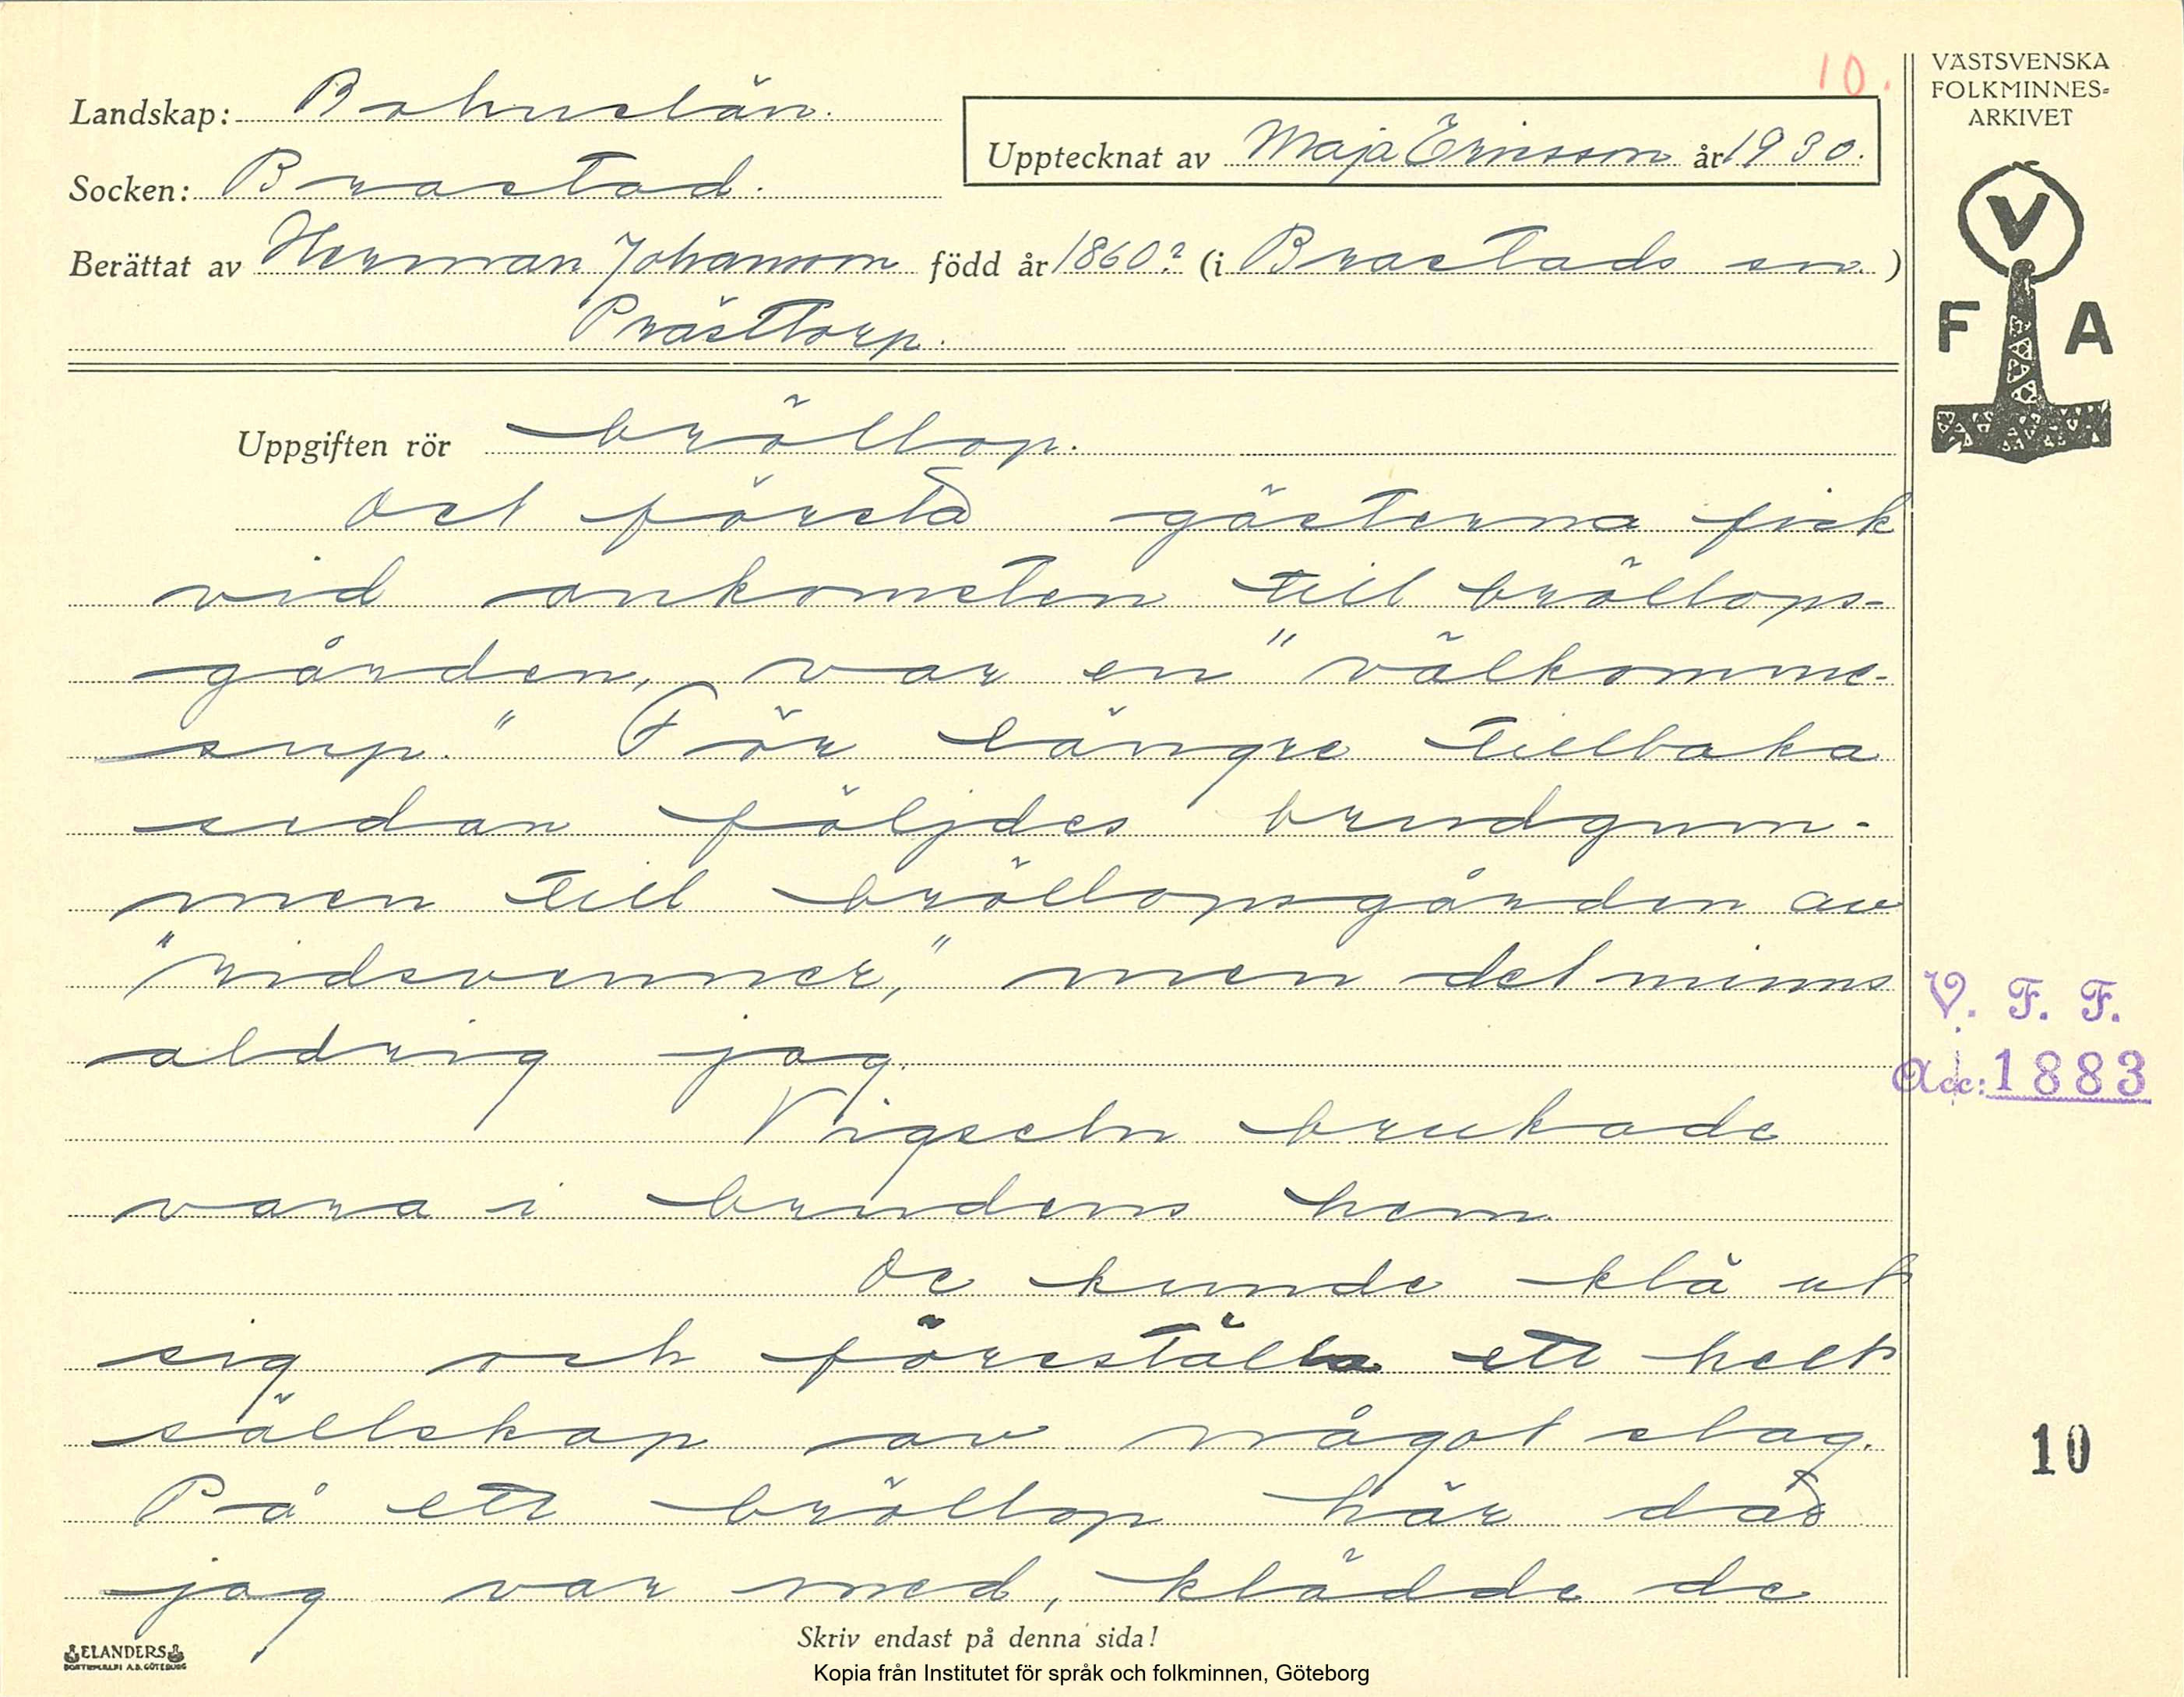 10.
VÄSTSVENSKA
FOLKMINNES-
ARKIVET
Landskap: Bohuslän.
Upptecknat av Maja Ericsson år 1930.
Socken: Brastad.
Berättat av Herman Johansson född år 1860? (i Brastads sn.)
Prästtorp.
V
F A
Uppgiften rör bröllop.
Det första gästerna fick
vid ankomsten till bröllops-
gården, var en "välkomme-
sup." För längre tillbaka
sedan följdes brudgum-
men till bröllopsgården av
"ridsvenner," men det minns
aldrig jag.
V. F. F.
Acc: 1883
Vigseln brukade
vara i brudens hem.
De kunde klä ut
sig och föreställa ett helt
sällskap av något slag.
10
På ett bröllop här där
jag var med, klädde de
Skriv endast på denna sida!
ELANDERS
BOKTRYCKERI A.B. GÖTEBORG
Kopia från Institutet för språk och folkminnen, Göteborg